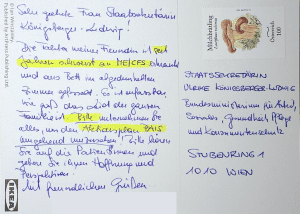 Sehr geehrte Frau Staatssekretärin
Königsberger-Ludwig!
Die Tochter meiner Freundin ist seit
Jahren schwerst an ME/CFS erkrankt
und ans Bett im abgedunkelten
Zimmer gefesselt. Es ist unfassbar
wie groß das Leid der ganzen
Familie ist. Bitte unternehmen Sie
alles, um den Aktionsplan PAIS
umgehend umzusetzen! Bitte hören
Sie auf die Patientinnen und
geben Sie ihnen Hoffnung und
Perspektiven!
Mit freundlichen Grüßen
IKEA
Milchbrätling
Deutschland
100
STAATSSEKRETÄRIN
ULRIKE KÖNIGSBERGER-LUDWIG
Bundesministerium für Arbeit,
Soziales, Gesundheit, Pflege
und Konsumentenschutz
STUBENRING 1
1010 WIEN